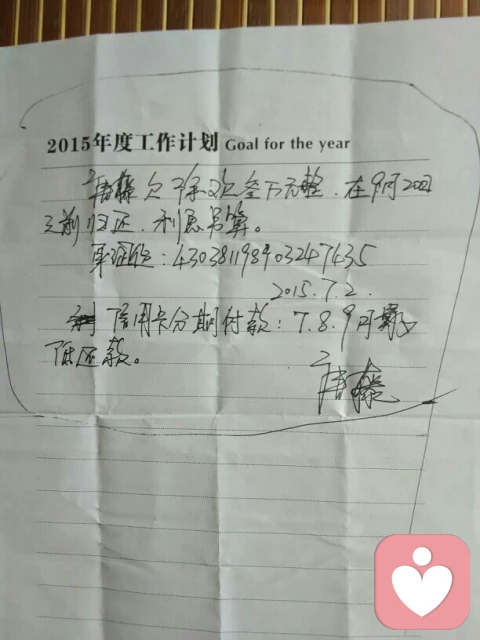 2015年度工作计划 Goal for the year
唐 欠 余欢叁万元整.在9月20日
之前归还.利息另算。
身证号:430381198903247435
2015.7.2.
信用卡分期付款:7.8.9月
还款。
唐